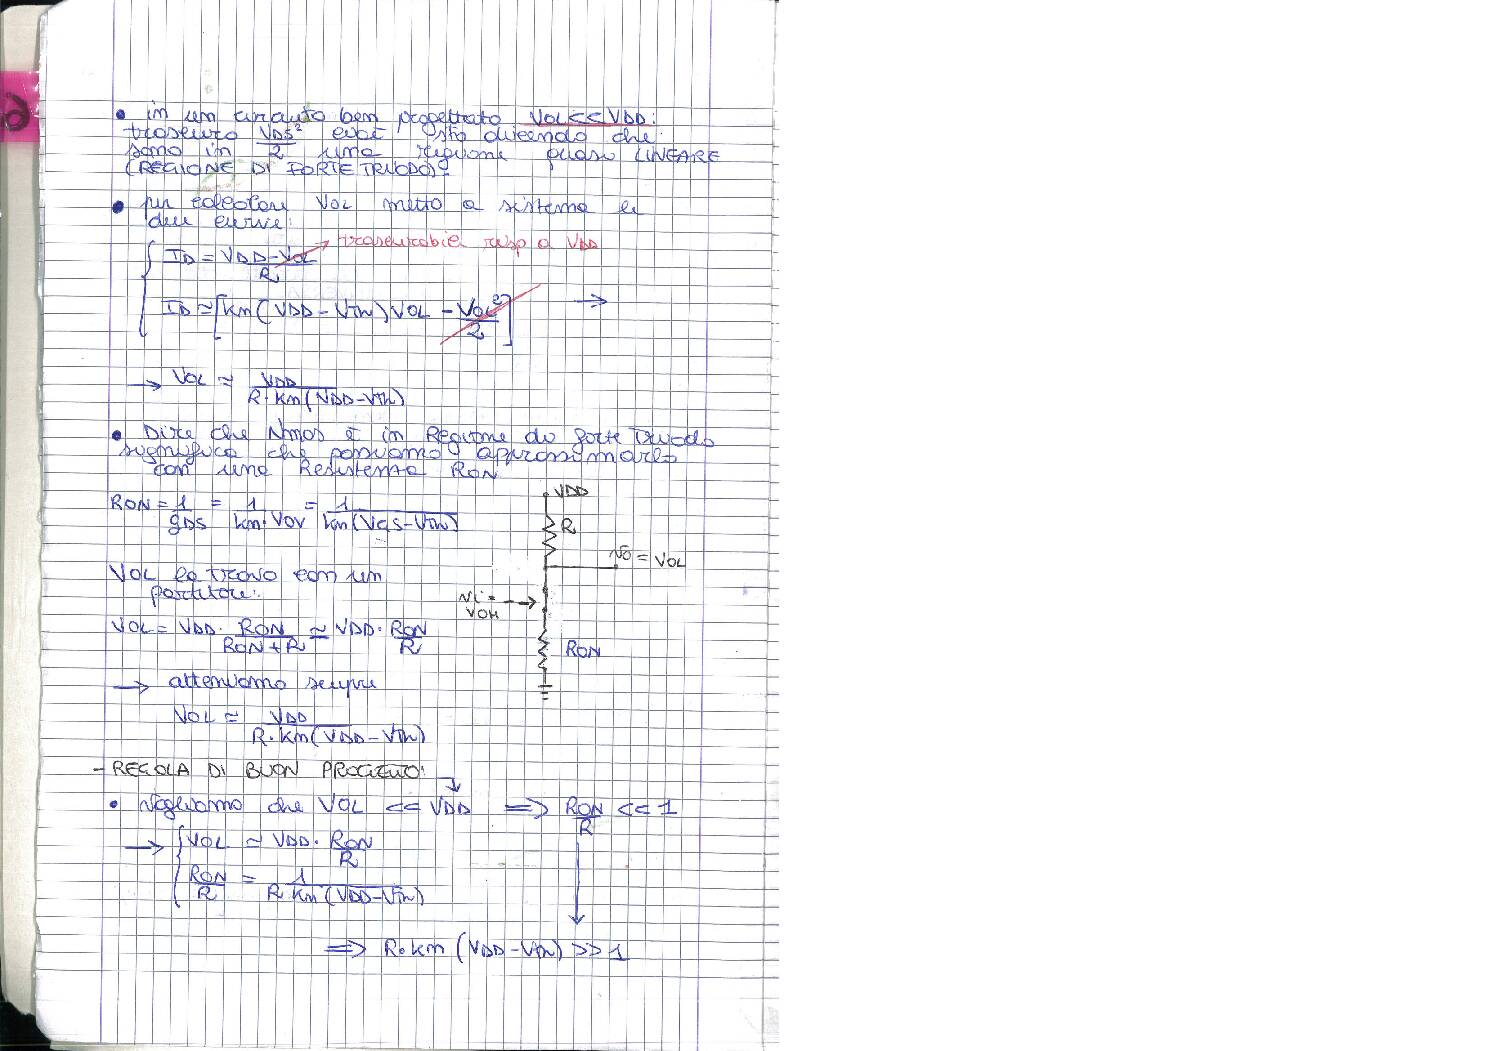 • in un circuito ben progettato VOL<<VDD:
trascuro VDS²/2 cioè sto dicendo che
sono in una regione quasi LINEARE
(REGIONE DI FORTE TRIODO).
• per calcolare VOL metto a sistema le
due curve:
ID = (VDD-VOL)/R → trascurabile risp a VDD
ID ≃ [kn(VDD-VTn)VOL - VOL²/2] →
→ VOL ≃ VDD / (R·kn(VDD-VTn))
• Dire che Nmos è in Regione di forte Triodo
significa che possiamo approssimarlo
con una Resistenza RON
RON = 1/gDS = 1/(kn·VOV) = 1/(kn(VGS-VTn))
VDD
R
VO = VOL
VOL lo trovo con un
partitore:
Vi =
VOH
VOL = VDD · RON/(RON+R) ≃ VDD · RON/R
RON
→ otteniamo sempre
VOL ≃ VDD / (R·kn(VDD-VTn))
- REGOLA DI BUON PROGETTO:
• Vogliamo che VOL << VDD ⇒ RON/R << 1
→ VOL ≃ VDD · RON/R
RON/R = 1/(R kn(VDD-VTn))
⇒ R·kn(VDD-VTn) >> 1